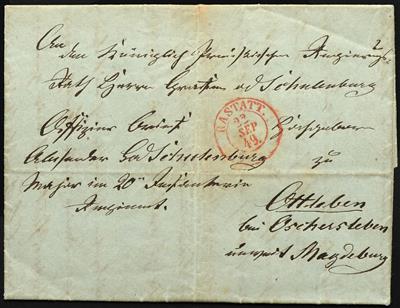 An
den Königlich Preußischen Regierungs-
Rath Herrn Grafen vd Schulenburg
Offizier Brief Hochgeboren
Alexander Gvd Schulenburg zu
Major im 20ten Infanterie
Regiment.
RASTATT.
22
SEP
49
Ottleben
bei Oschersleben
unweit Magdeburg